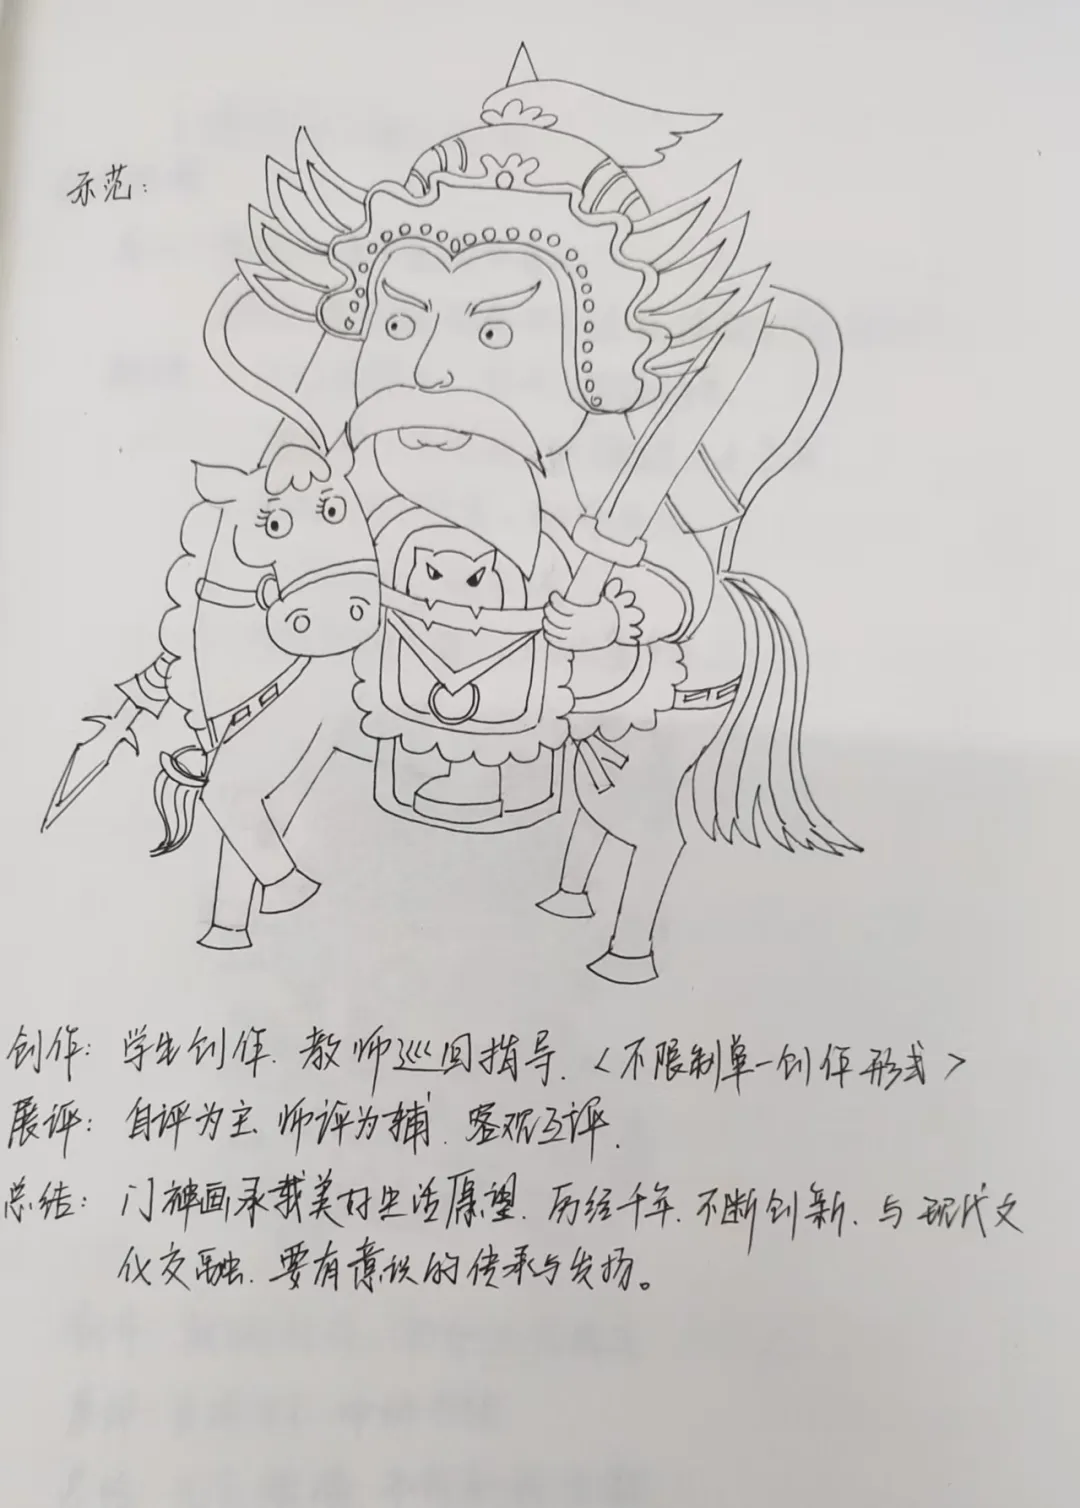 示范：
创作：学生创作．教师巡回指导．＜不限制单一创作形式＞
展评：自评为主 师评为辅．客观互评．
总结：门神画承载美好生活愿望．历经千年．不断创新．与现代文
化交融．要有意识的传承与发扬。